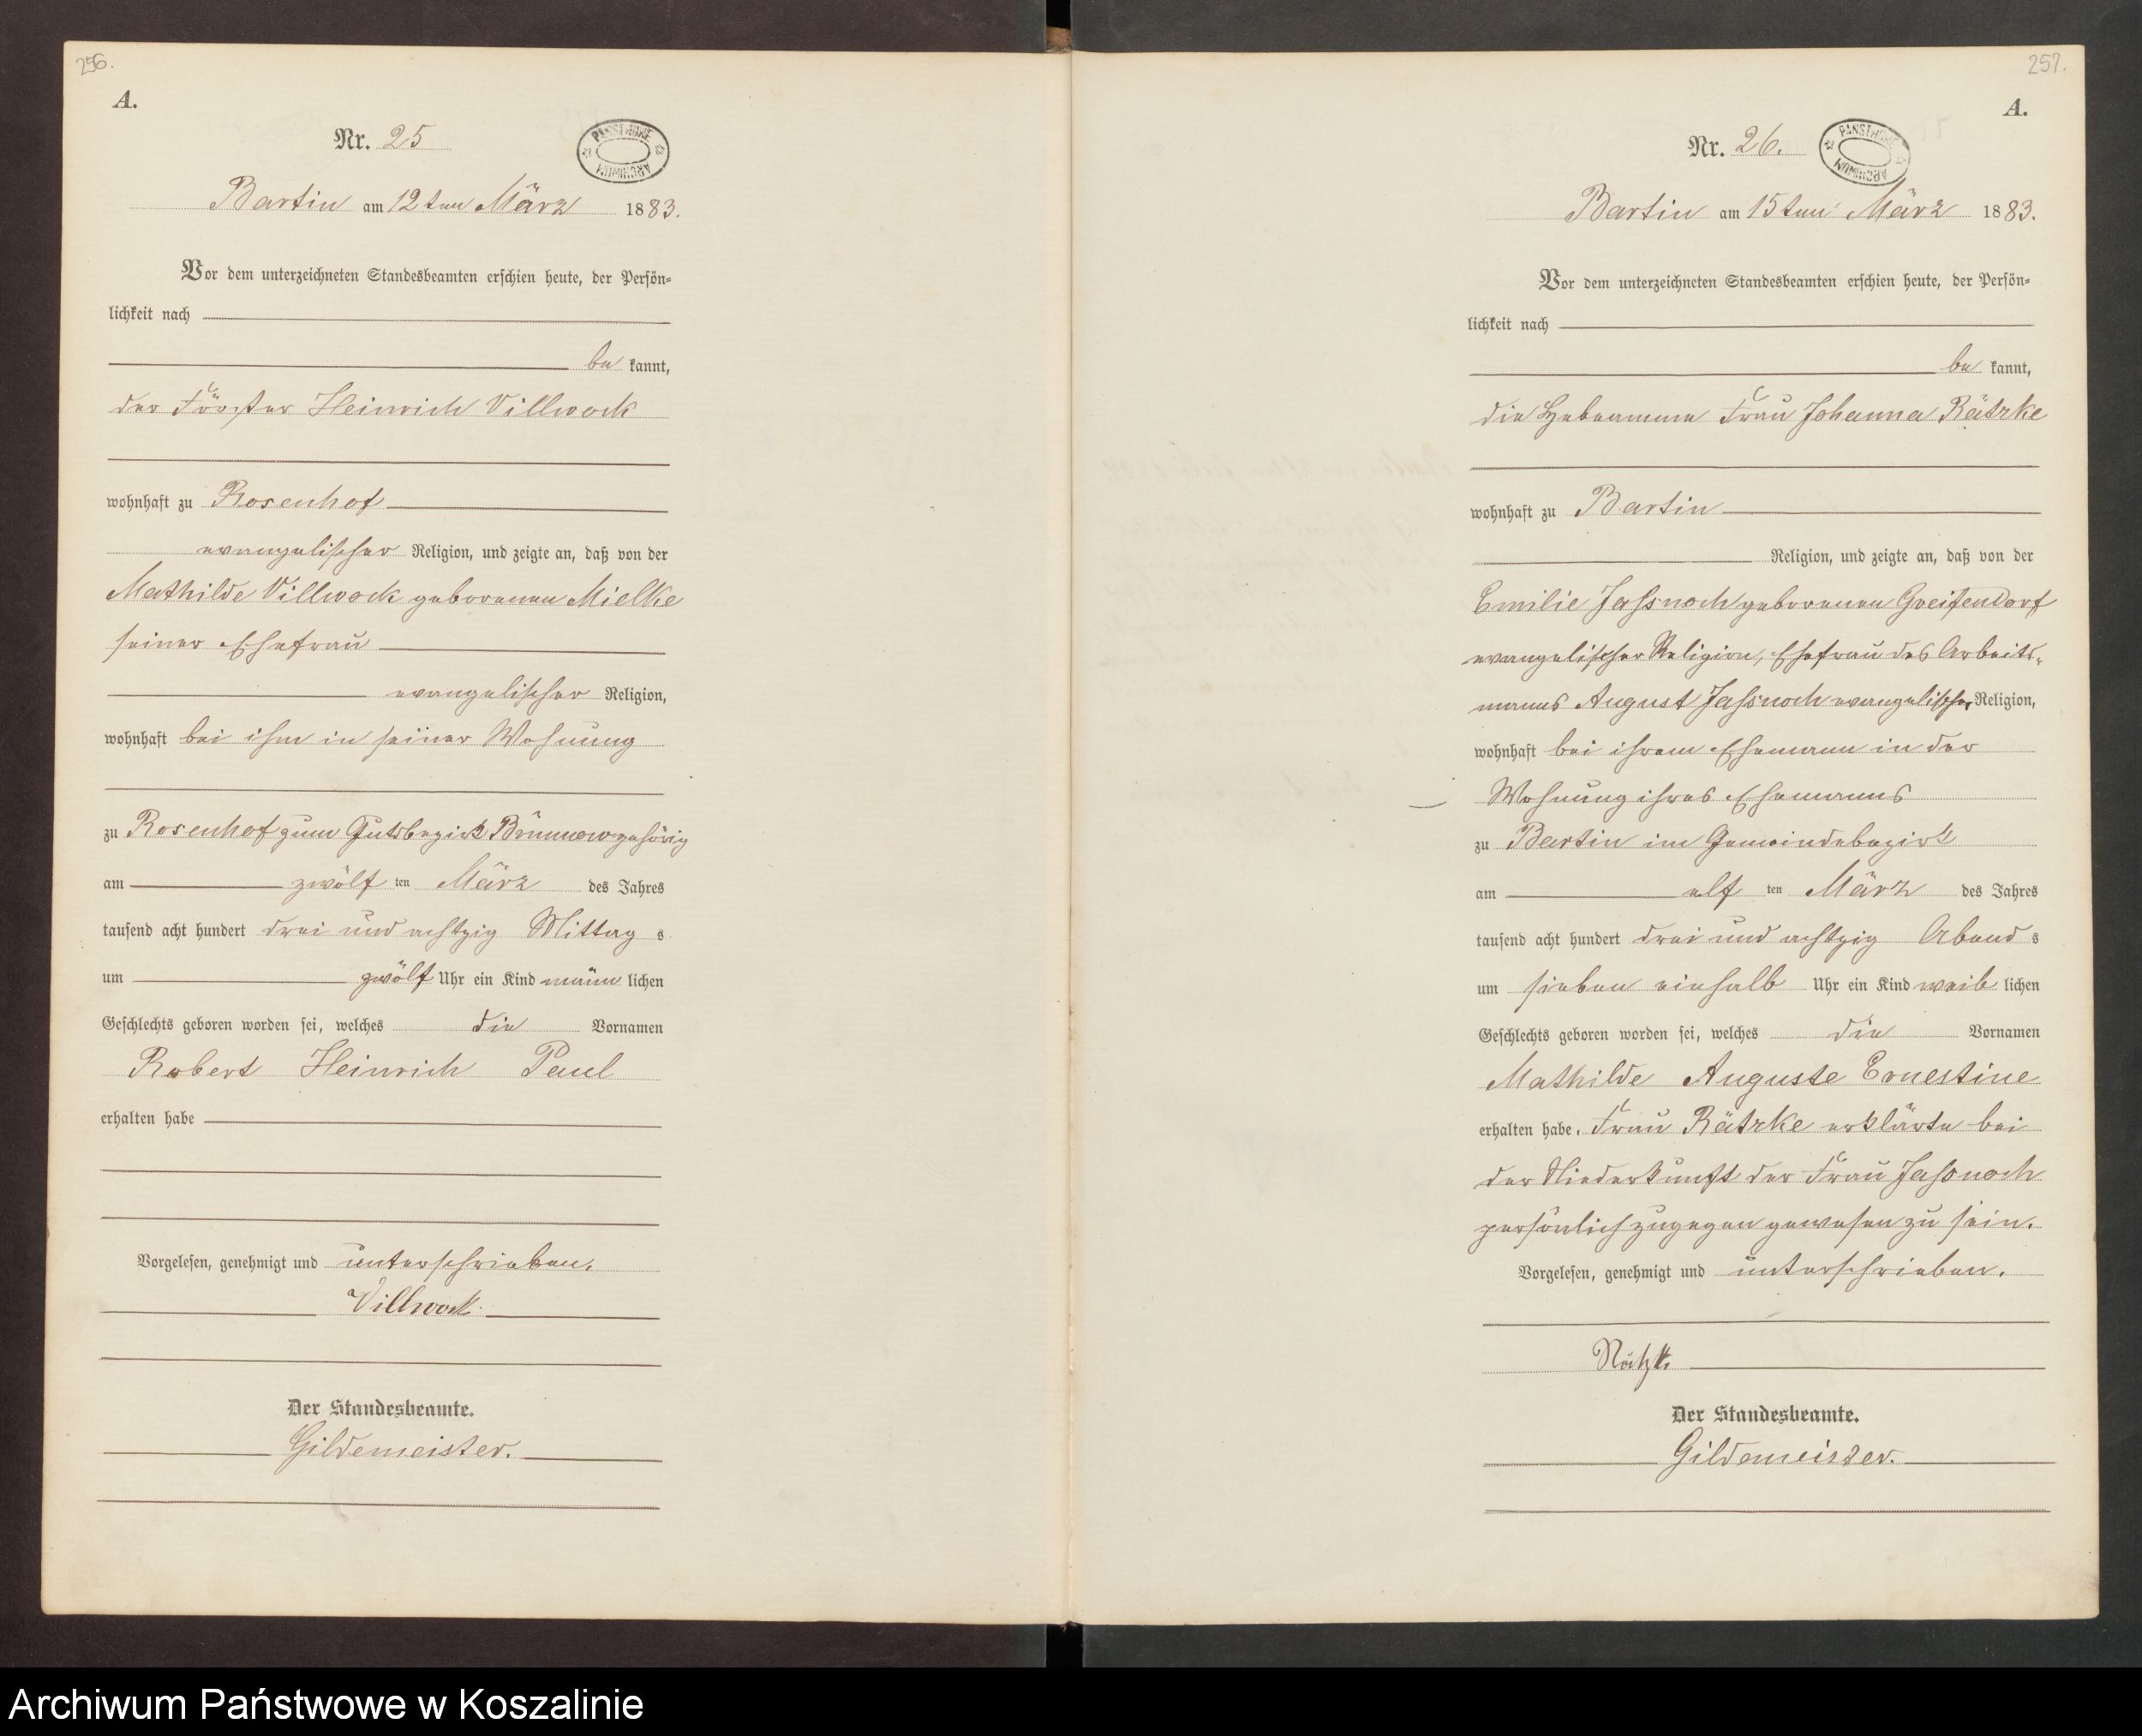 256.
A.
Nr. 25
PAŃSTWOWE ARCHIWUM
Bartin am 12ten März 1883.
Vor dem unterzeichneten Standesbeamten erschien heute, der Persön-
lichkeit nach
be kannt,
der Förster Heinrich Villwock
wohnhaft zu Rosenhof
evangelischer Religion, und zeigte an, daß von der
Mathilde Villwock geborenen Mielke
seiner Ehefrau
evangelischer Religion,
wohnhaft bei ihm in seiner Wohnung
zu Rosenhof zum Gutsbezirk Brünnow gehörig
am zwölf ten März des Jahres
tausend acht hundert drei und achtzig Mittag s
um zwölf Uhr ein Kind männ lichen
Geschlechts geboren worden sei, welches die Vornamen
Robert Heinrich Paul
erhalten habe
Vorgelesen, genehmigt und unterschrieben.
Villwock.
Der Standesbeamte.
Gildemeister.
257.
A.
Nr. 26.
PAŃSTWOWE ARCHIWUM
Bartin am 15ten März 1883.
Vor dem unterzeichneten Standesbeamten erschien heute, der Persön-
lichkeit nach
be kannt,
die Hebeamme Frau Johanna Rätzke
wohnhaft zu Bartin
Religion, und zeigte an, daß von der
Emilie Jassnoch geborenen Greifendorf
evangelischer Religion, Ehefrau des Arbeits-
manns August Jassnoch evangelischer Religion,
wohnhaft bei ihrem Ehemann in der
Wohnung ihres Ehemanns
zu Bartin im Gemeindebezirk
am elf ten März des Jahres
tausend acht hundert drei und achtzig Abend s
um sieben einhalb Uhr ein Kind weib lichen
Geschlechts geboren worden sei, welches die Vornamen
Mathilde Auguste Ernestine
erhalten habe. Frau Rätzke erklärte bei
der Niederkunft der Frau Jassnoch
persönlich zugegen gewesen zu sein.
Vorgelesen, genehmigt und unterschrieben.
Rätzke
Der Standesbeamte.
Gildemeister.
Archiwum Państwowe w Koszalinie